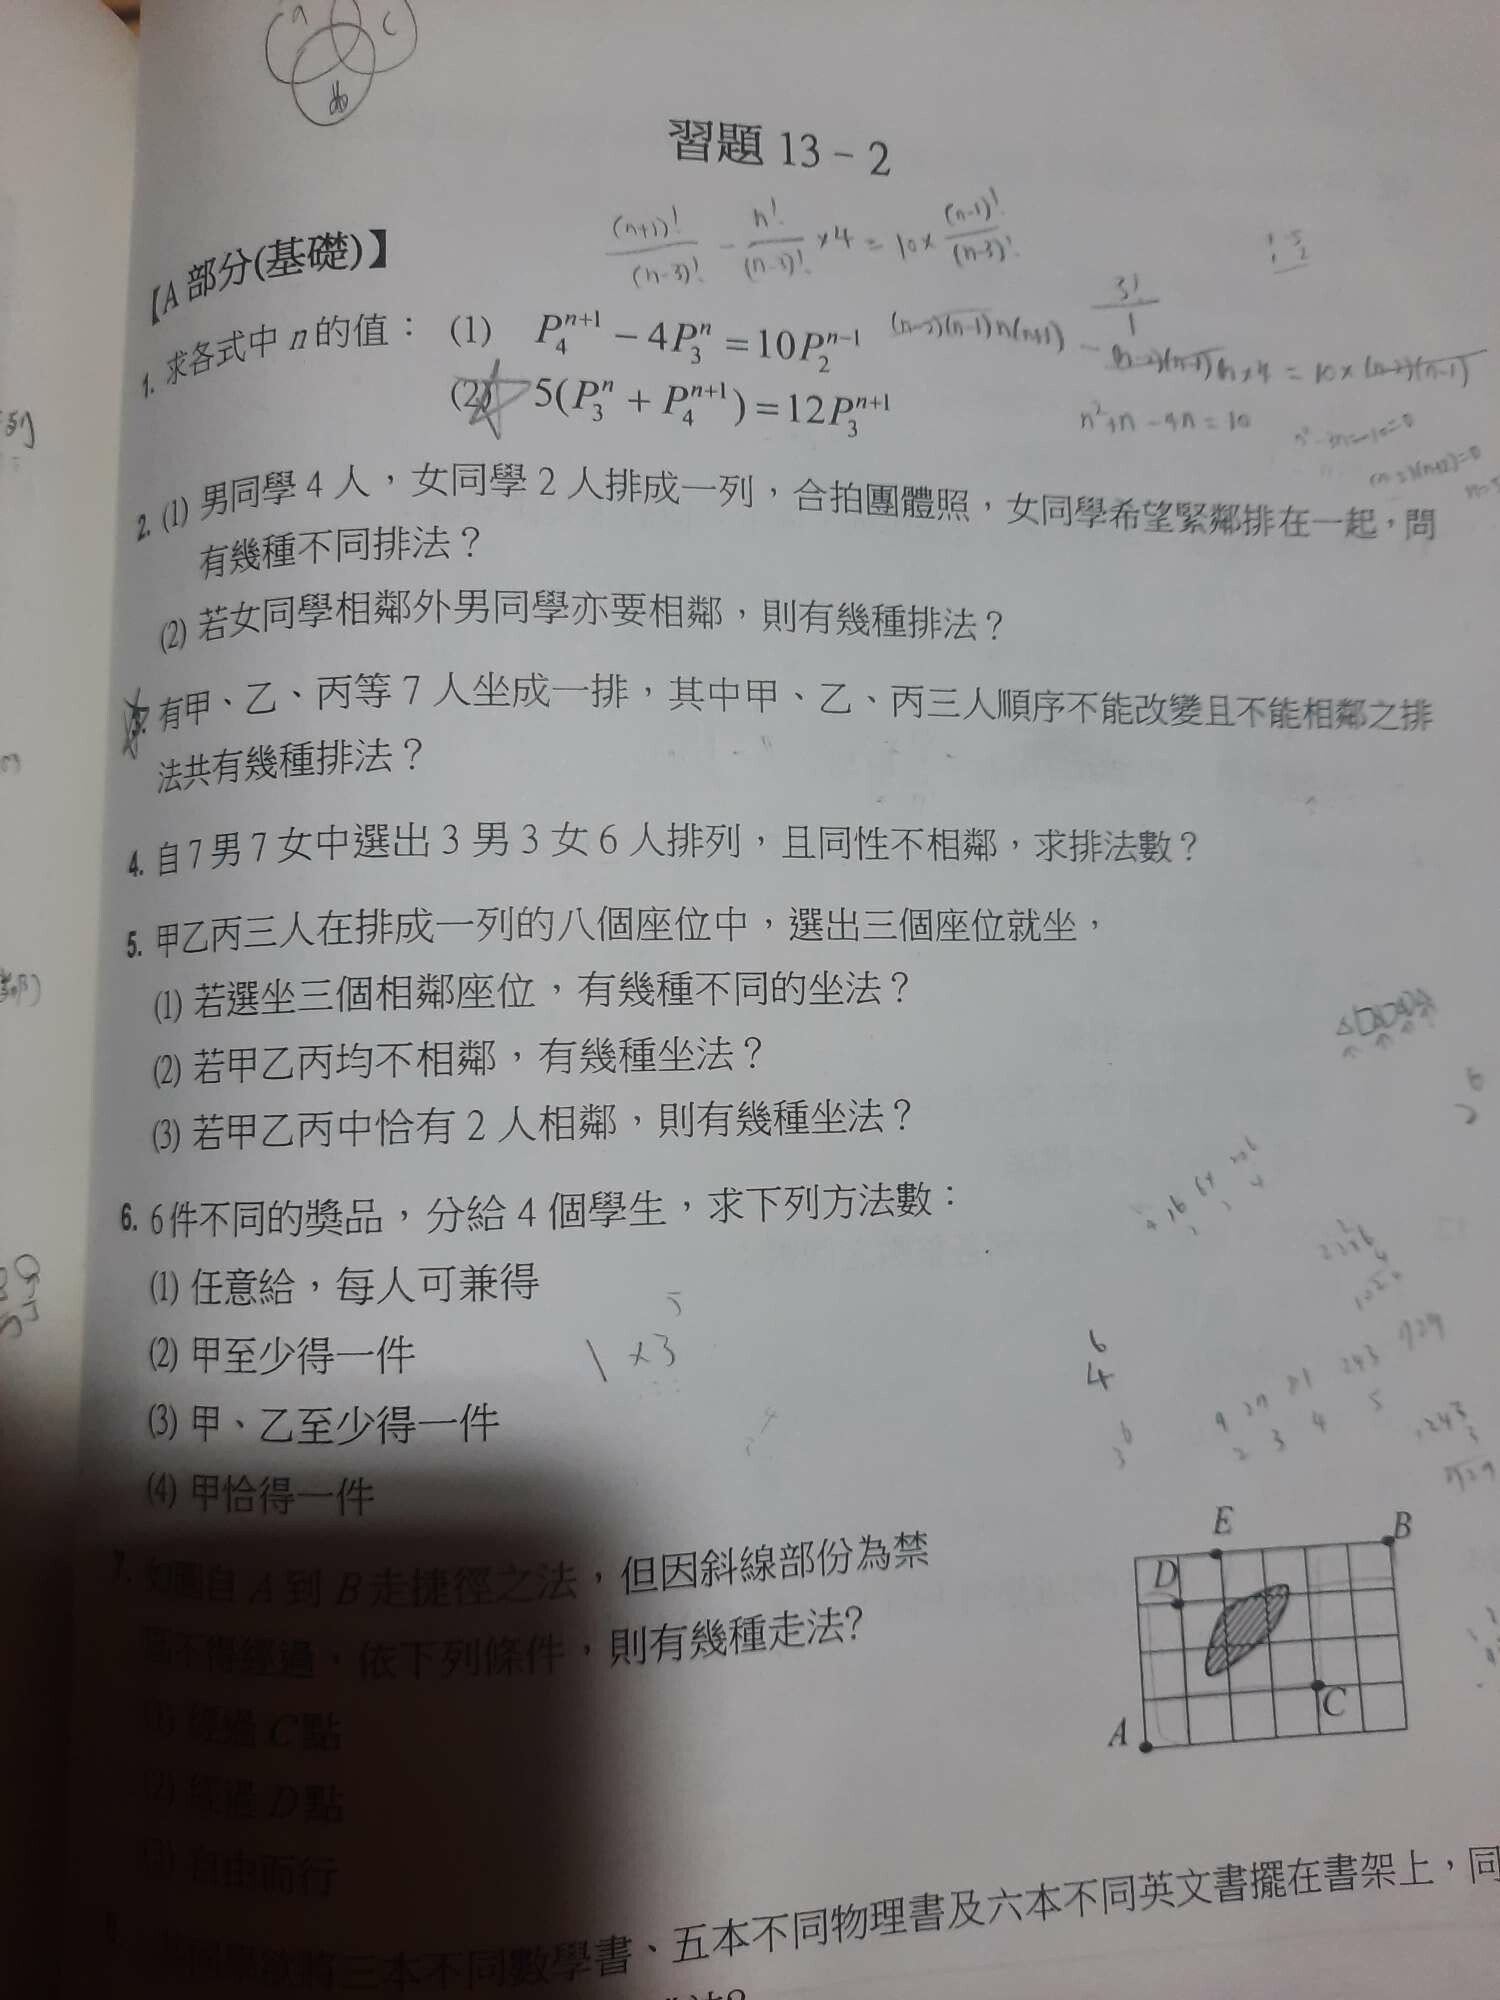 習題 13 - 2
(n+1)!/(n-3)! - n!/(n-3)! ×4 = 10× (n-1)!/(n-3)!
【A 部分(基礎)】
3!/1
1. 求各式中 n 的值： (1) P₄ⁿ⁺¹ − 4P₃ⁿ = 10P₂ⁿ⁻¹
(2) 5(P₃ⁿ + P₄ⁿ⁺¹) = 12P₃ⁿ⁺¹
n²+n - 4n = 10
2. (1) 男同學 4 人，女同學 2 人排成一列，合拍團體照，女同學希望緊鄰排在一起，問
有幾種不同排法？
(2) 若女同學相鄰外男同學亦要相鄰，則有幾種排法？
3. 有甲、乙、丙等 7 人坐成一排，其中甲、乙、丙三人順序不能改變且不能相鄰之排
法共有幾種排法？
4. 自 7 男 7 女中選出 3 男 3 女 6 人排列，且同性不相鄰，求排法數？
5. 甲乙丙三人在排成一列的八個座位中，選出三個座位就坐，
(1) 若選坐三個相鄰座位，有幾種不同的坐法？
(2) 若甲乙丙均不相鄰，有幾種坐法？
(3) 若甲乙丙中恰有 2 人相鄰，則有幾種坐法？
6. 6件不同的獎品，分給 4 個學生，求下列方法數：
(1) 任意給，每人可兼得
(2) 甲至少得一件
1 × 3⁵
(3) 甲、乙至少得一件
(4) 甲恰得一件
7. 如圖自 A 到 B 走捷徑之法，但因斜線部份為禁
區不得經過，依下列條件，則有幾種走法?
(1) 經過 C 點
(2) 經過 D 點
(3) 自由而行
E
B
D
C
A
將三本不同數學書、五本不同物理書及六本不同英文書擺在書架上，同